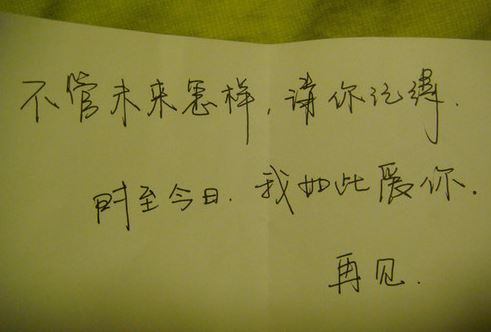 不管未来怎样，请你记得.
时至今日.我如此爱你.
再见.